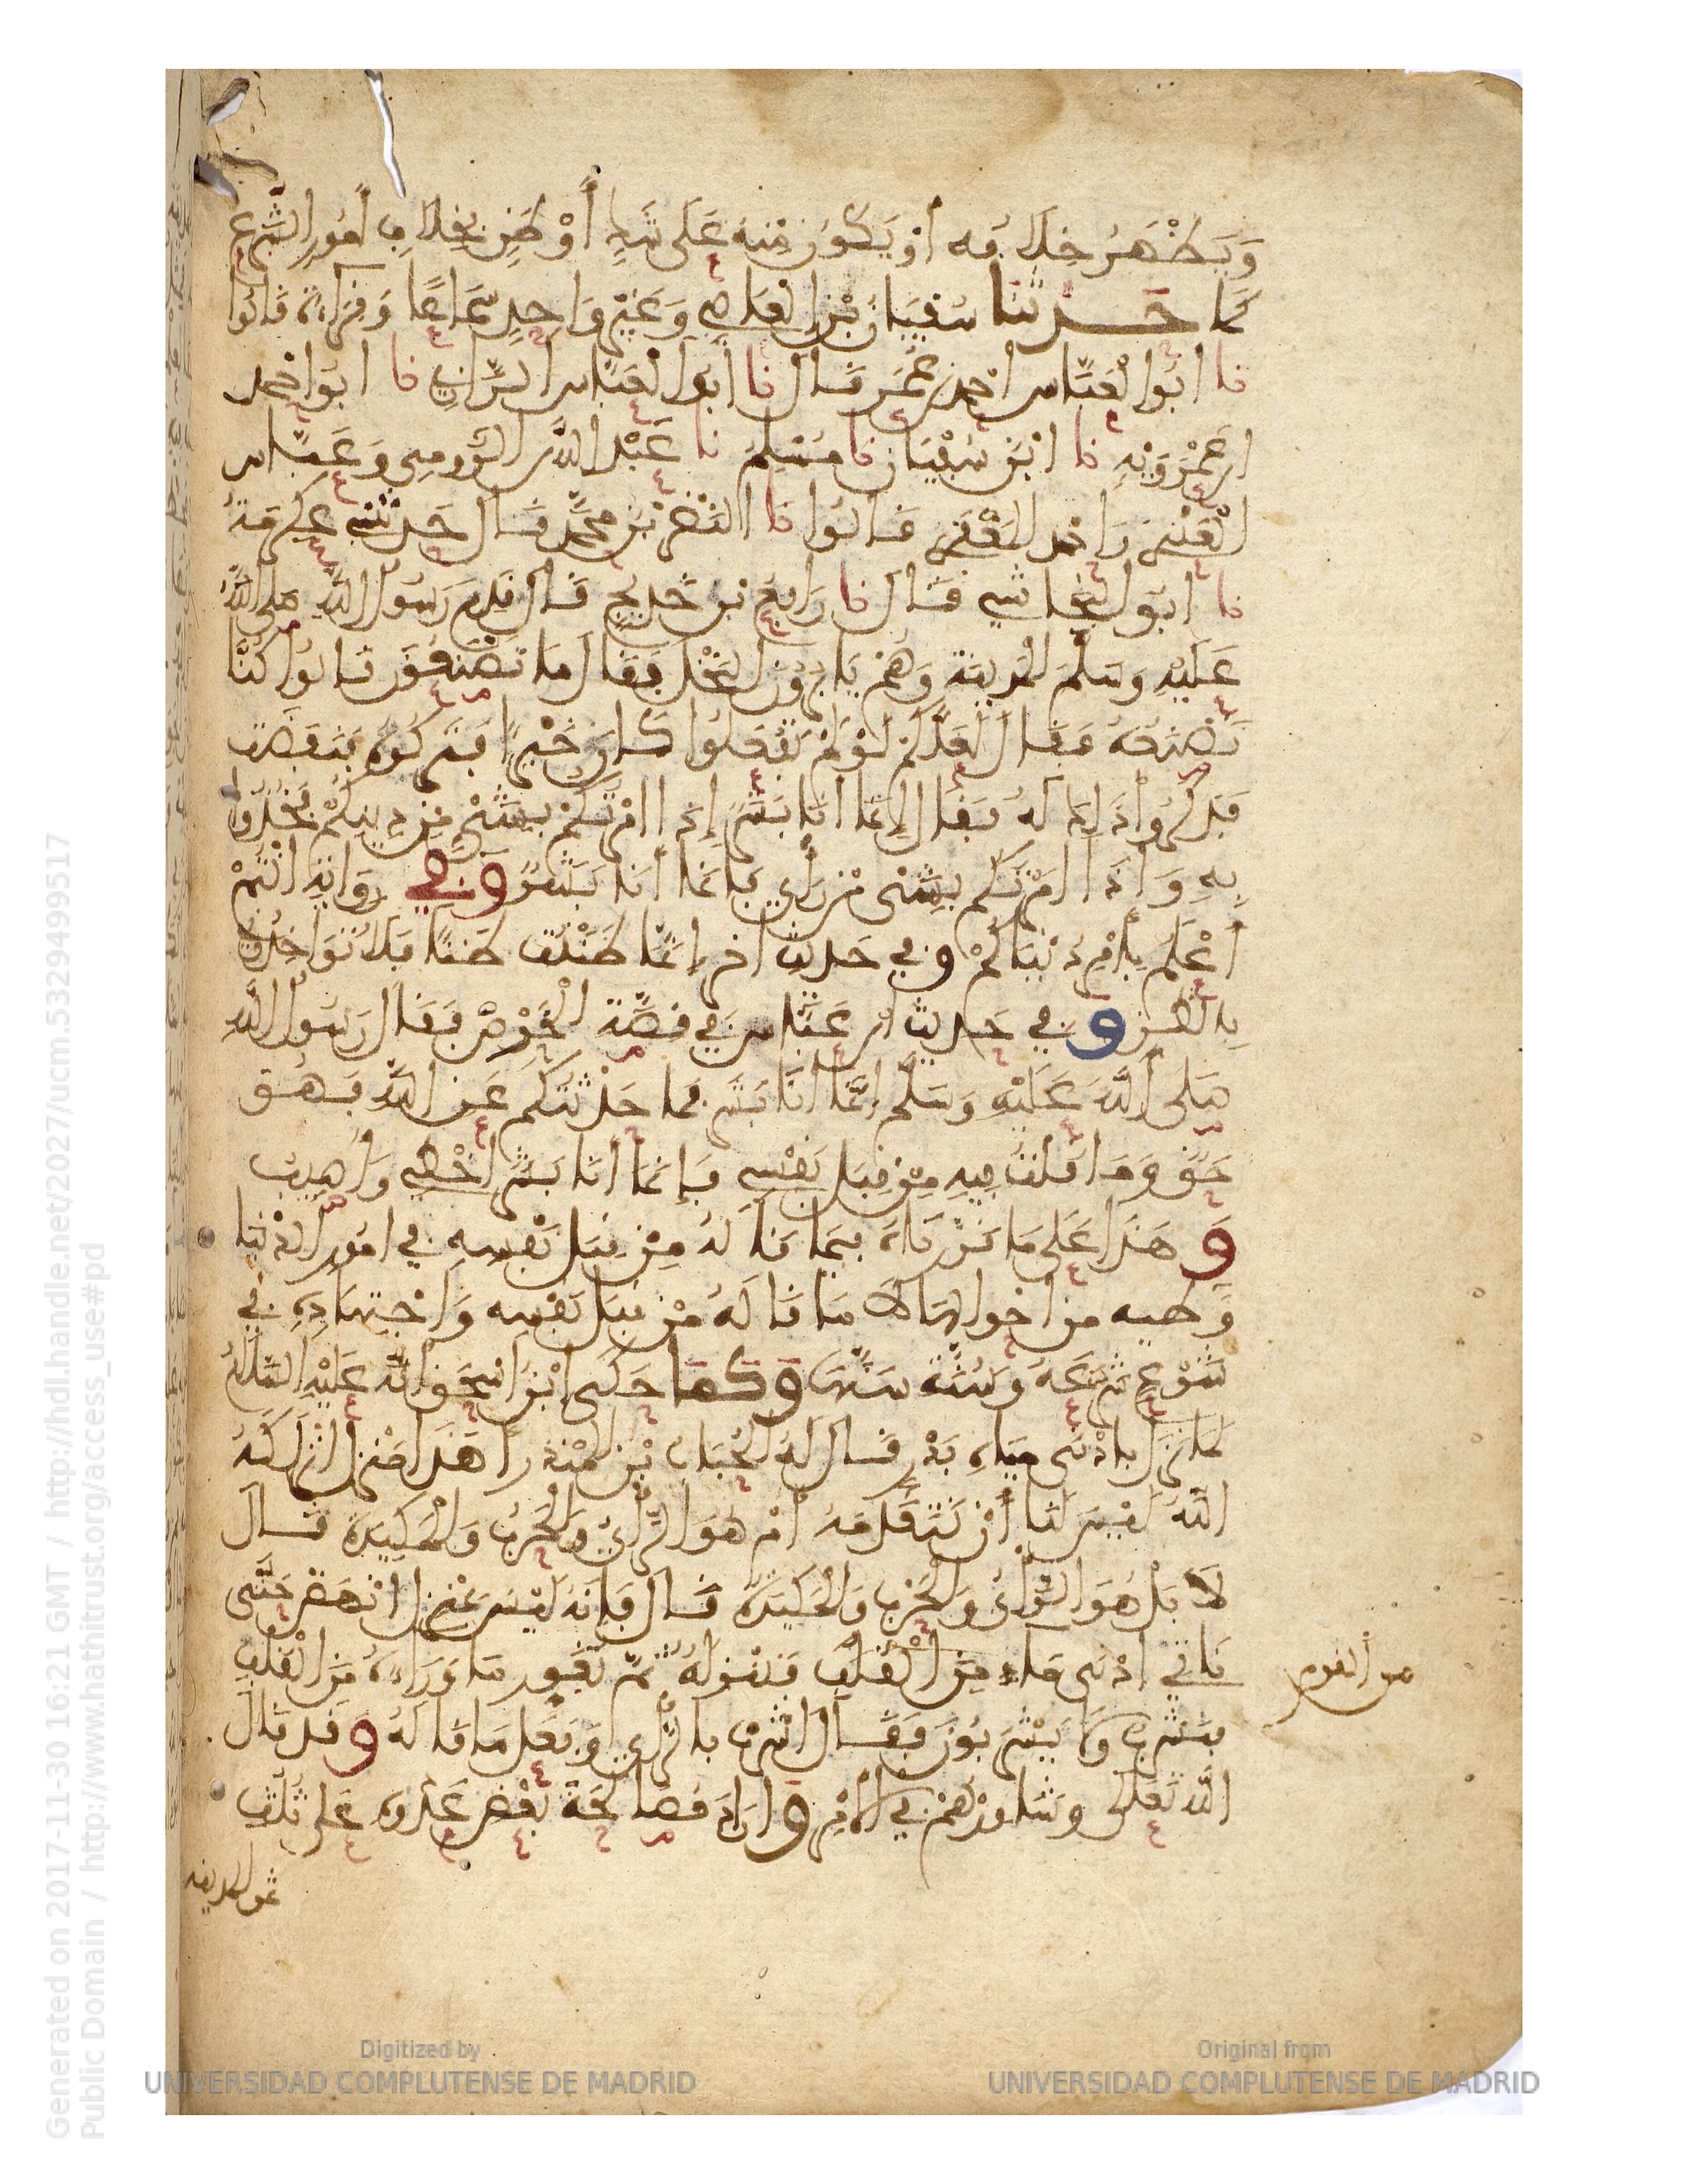 وَيَظْهَرُ خِلَافُه أَوْ يَكُونُ مِنْهُ عَلَى شَكٍّ أَوْ ظَنٍّ بِخِلَافِ أُمُورِ الشَّرْعِ
كَمَا حَدَّثَنَا سُفْيَانُ بْنُ الْعَاصِي وَغَيْرُ وَاحِدٍ سَمَاعًا وَقِرَاءَةً قَالُوا
نا أَبُو الْعَبَّاسِ أَحْمَدُ بْنُ عُمَرَ قَالَ نا أَبُو الْعَبَّاسِ الرَّازِي نا أَبُو أَحْمَد
ابن عَمْرَوَيْهِ نا ابْنُ سُفْيَان نا مُسْلِمٌ نا عَبْدُ اللهِ الرُّومِي وَعَبَّاس
الْعَنْبَرِي وَأَحْمَد الْمَعْقِرِي قَالُوا نا النَّضْرُ بْنُ مُحَمَّدٍ قَالَ حَدَّثَنِي عِكْرِمَةُ
نا أَبُو النَّجَاشِي قَالَ نا رَافِعُ بْنُ خَدِيجٍ قَالَ قَدِمَ رَسُولُ اللَّهِ صَلَّى اللَّهُ
عَلَيْهِ وَسَلَّمَ الْمَدِينَةَ وَهُمْ يَأْبِرُونَ النَّخْلَ فَقَالَ مَا تَصْنَعُونَ قَالُوا كُنَّا
نَصْنَعُهُ فَقَالَ لَعَلَّكُمْ لَوْ لَمْ تَفْعَلُوا كَانَ خَيْرًا فَتَرَكُوهُ فَنَفَضَتْ
فَذَكَرُوا ذَلِكَ لَهُ فَقَالَ إِنَّمَا أَنَا بَشَرٌ إِذَا أَمَرْتُكُمْ بِشَيْءٍ مِنْ دِينِكُمْ فَخُذُوا
بِهِ وَإِذَا أَمَرْتُكُمْ بِشَيْءٍ مِنْ رَأْيٍ فَإِنَّمَا أَنَا بَشَرٌ وَفِي رِوَايَةِ أَنْتُمْ
أَعْلَمُ بِأَمْرِ دُنْيَاكُمْ وفي حَدِيث آخر إِنَّمَا ظَنَنْتُ ظَنًّا فَلَا تُوَاخِذُونِي
بِالظَّنِّ وفي حَدِيث ابن عَبَّاس فِي قِصَّة الْخَرْصِ فَقَالَ رَسُولُ اللَّهِ
صَلَّى اللَّهُ عَلَيْهِ وَسَلَّمَ إِنَّمَا أَنَا بَشَرٌ فَمَا حَدَّثْتُكُمْ عَنِ اللَّهِ فَهُوَ
حَقٌّ وَمَا قُلْتُ فِيهِ مِنْ قِبَلِ نَفْسِي فَإِنَّمَا أَنَا بَشَرٌ أُخْطِي وَأُصِيبُ
وَهَذَا عَلَى مَا قَرَّرْنَاهُ فِيمَا قَالَهُ مِنْ قِبَلِ نَفْسِهِ فِي أُمُورِ الدُّنْيَا
وَظَنِّه من أَحْوَالِهَا لَا مَا قَالَهُ مِنْ قِبَلِ نَفْسِه وَاجْتِهَادِهِ فِي
شَرْعٍ شَرَعَهُ وَسُنَّةٍ سَنَّهَا وَكَمَا حَكَى ابْنُ إِسْحَقَ أَنَّهُ عَلَيْهِ السَّلَامُ
لَمَّا نَزَلَ بِأَدْنَى مِيَاهِ بَدْرٍ قَالَ لَهُ الْحُبَابُ بْنُ الْمُنْذِرِ أَهَذَا مَنْزِلٌ أَنْزَلَكَهُ
اللَّهُ لَيْسَ لَنَا أَنْ نَتَقَدَّمَهُ أَمْ هُوَ الرَّأْيُ وَالْحَرْبُ وَالْمَكِيدَةُ قَالَ
لَا بَلْ هُوَ الرَّأْيُ وَالْحَرْبُ وَالْمَكِيدَةُ قَالَ فَإِنَّهُ لَيْسَ بِمَنْزِلٍ انْهَضْ حَتَّى
نَاتِيَ أَدْنَى مَاءٍ مِنَ الْقُلُبِ فَنَنْزِلَهُ ثُمَّ نُغَوِّرَ مَا وَرَاءَهُ مِنَ الْقُلُبِ
من القوم
فَنَشْرَبَ وَلَا يَشْرَبُونَ فَقَالَ أَشَرْتَ بِالرَّأْيِ وَفَعَلَ مَا قَالَهُ وَقَد قَالَ
اللَّهُ تَعَالَى وَشَاوِرْهُمْ فِي الْأَمْرِ وَأَرَادَ مُصَالَحَةَ بَعْضِ عَدُوِّهِ عَلَى ثُلُثِ
ثمر المدينة
Generated on 2017-11-30 16:21 GMT / http://hdl.handle.net/2027/ucm.5329499517
Public Domain / http://www.hathitrust.org/access_use#pd
Digitized by
UNIVERSIDAD COMPLUTENSE DE MADRID
Original from
UNIVERSIDAD COMPLUTENSE DE MADRID